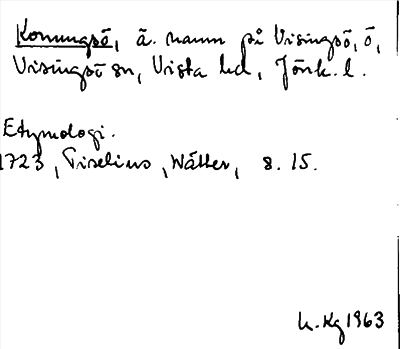 Konungsö, ä. namn på Visingsö, ö,
Visingsö sn, Vista hd, Jönk. l.
Etymologi.
1723, Tiselius, Wätter, s. 15.
K. Kg 1963